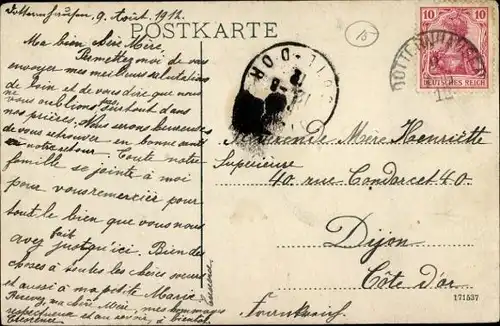 Dotternhausen, 9. Août, 1912.
POSTKARTE
Ma bien chère Mère,
Permettez moi de vous
envoyer mes meilleures salutations
de loin et de vous dire que nous
vous oublions pas surtout dans
nos prières. Nous serons heureuses
de vous retrouver en bonne santé
à notre retour. Toute notre
famille se joint à moi
pour vous remercier pour
tout le bien que vous nous
avez fait jusqu'ici. Bien des
choses à toutes les chères soeurs
et aussi à ma petite Marie
Recevez, ma chère Mère, mes hommages
respectueux et au revoir, à bientôt
Révérende Mère Henriette
Supérieure
40 rue Condorcet 40
Dijon
Côte d'or
Frankreich
171537
10 10
DEUTSCHES REICH
DOTTERNHAUSEN
12
CÔTE-D'OR
15